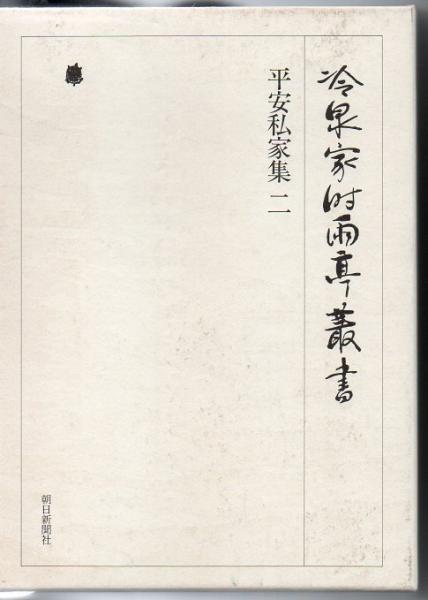 冷泉家时雨亭叢書
平安私家集 二
朝日新聞社